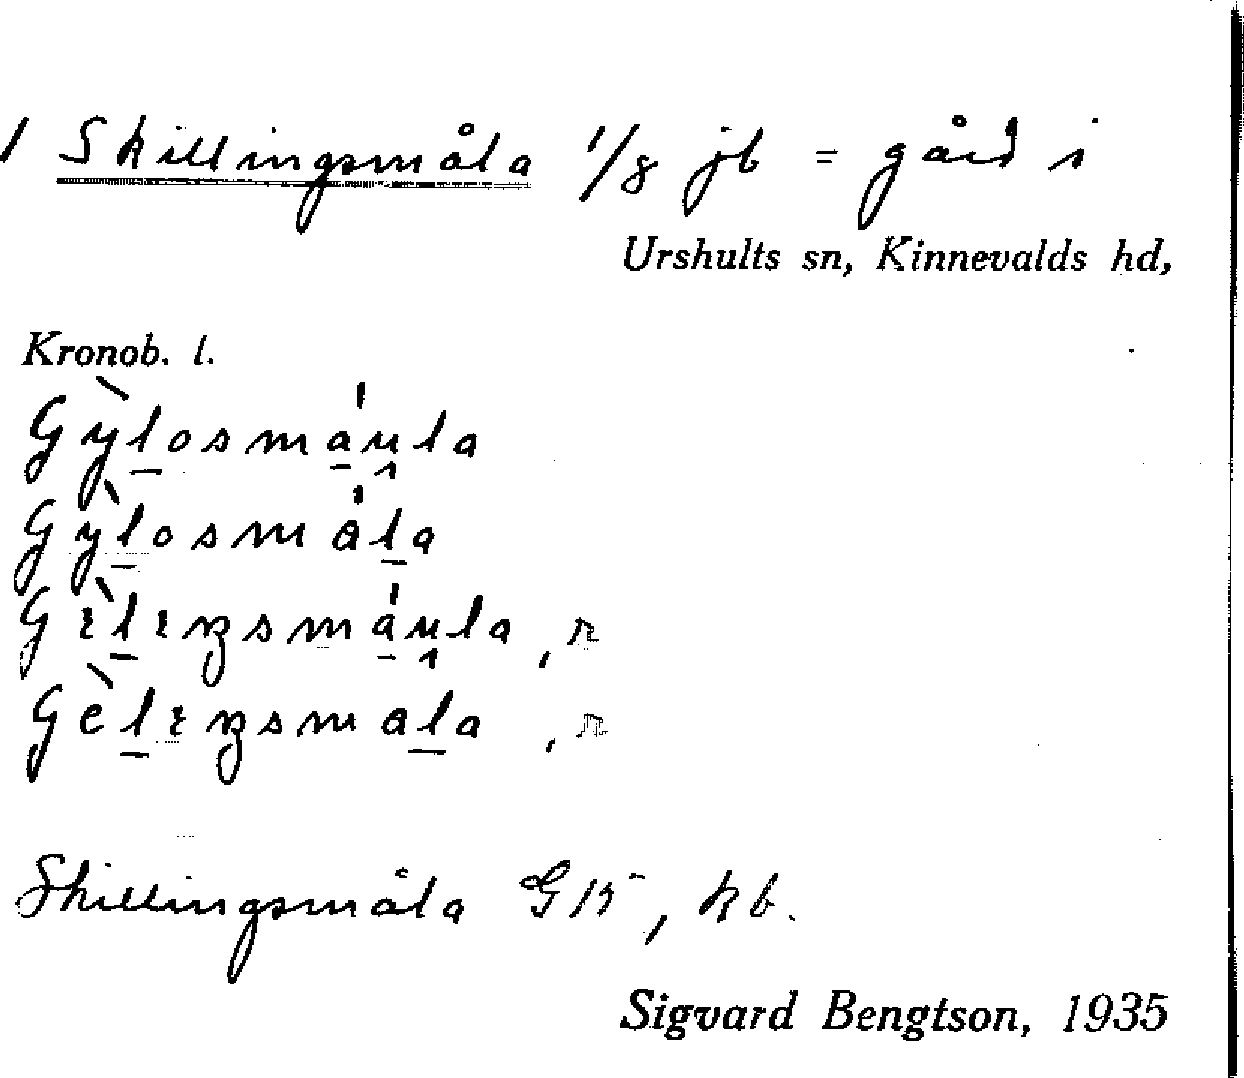 1 Skillingsmåla 1/8 jb = gård i
Urshults sn, Kinnevalds hd,
Kronob. l.
Gỳlosmáula
Gỳlosmåla
Skillingsmåla G 15, kb.
Sigvard Bengtson, 1935